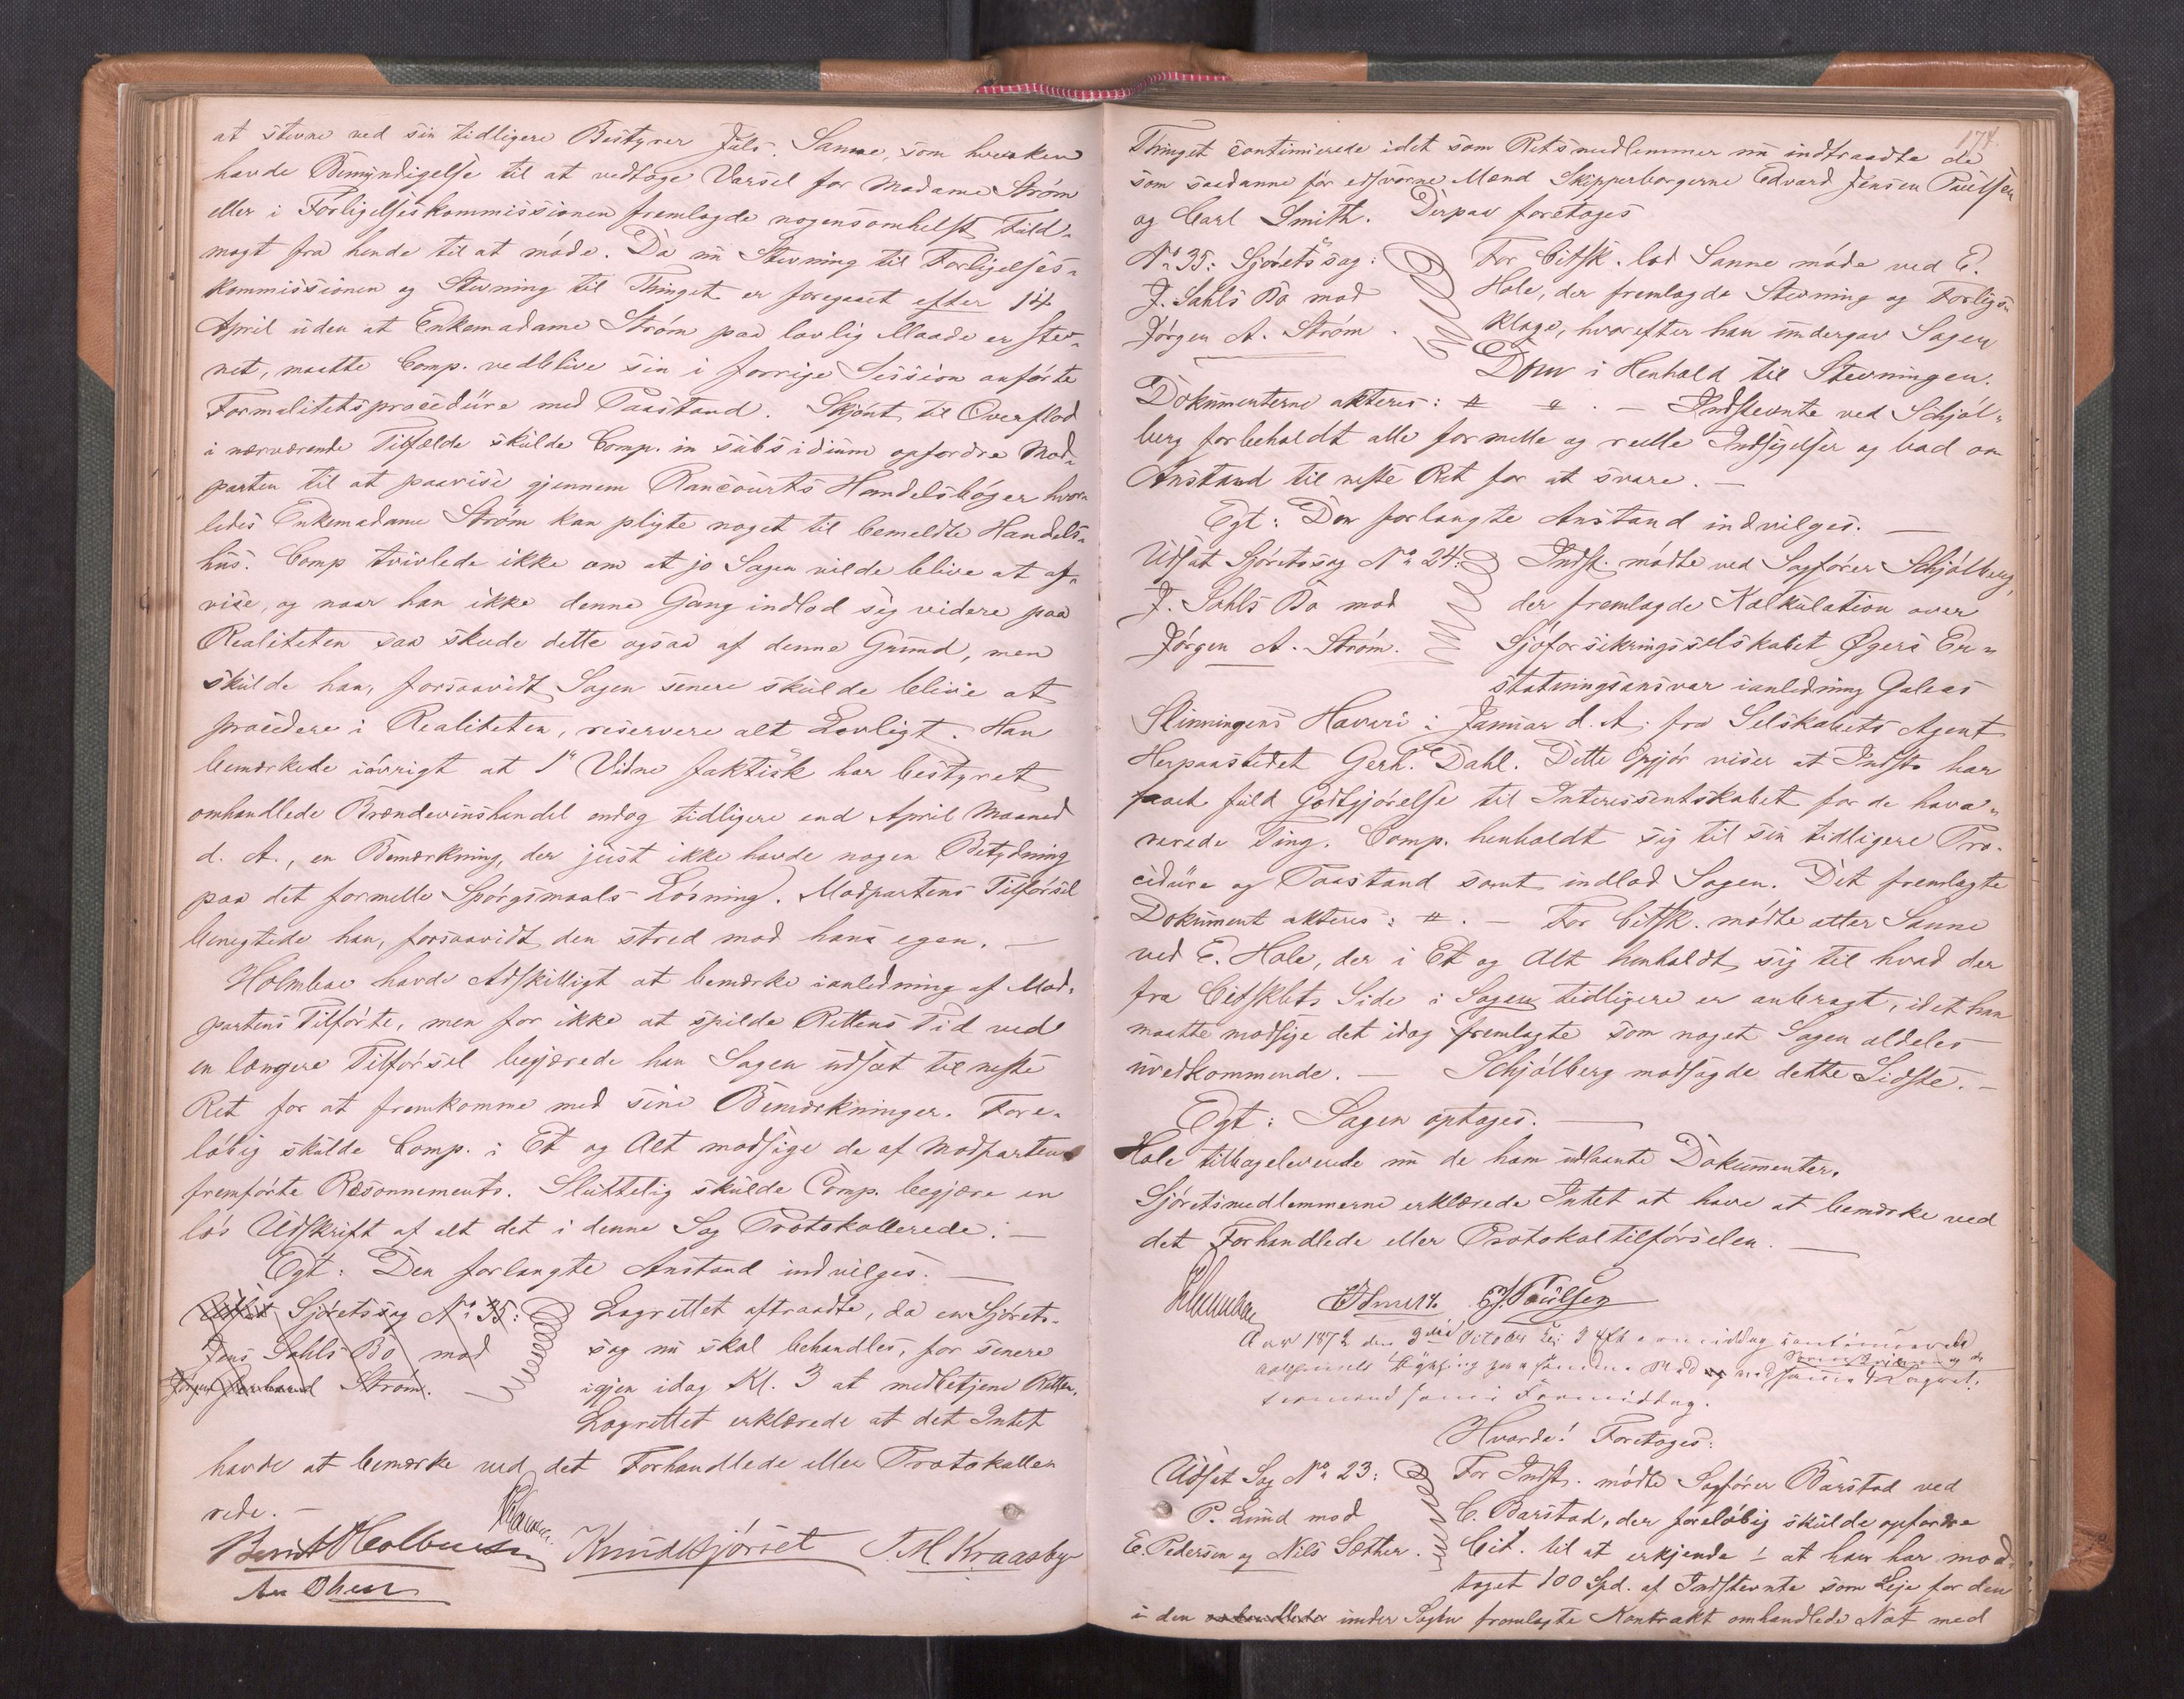 at stevne ved sin tidligere Bestyrer Fuls. Sanne, som hverken
havde Bemyndigelse til at vedtage Varsel for Madame Strøm
eller i Forligelseskommissionen fremlagde nogensomhelst Fuld-
magt fra hende til at møde. Da nu Stevning til Forligelses-
kommissionen og Stevning til Thinget er foregaaet efter 14
April uden at Enkemadame Strøm paa lovlig Maade er stev-
net, maatte Comp. vedblive sin i forrige Session anførte
Formalitetsprocedure med Paastand. Skjønt til Overflod
i nærværende Tilfælde skulde Comp. in subsidium opfordre Mod-
parten til at paavise gjennem Rancourts Handelsbøger hvor-
ledes Enkemadame Strøm kan pligte noget til bemeldte Handels-
hus. Comp tvivlede ikke om at jo Sagen vilde blive at af-
vise, og naar han ikke denne Gang indlod sig videre paa
Realiteten saa skede dette ogsaa af denne Grund, men
skulde han, forsaavidt Sagen senere skulde blive at
procedere i Realiteten, reservere alt Lovligt. Han
bemærkede iøvrigt at 1ste Vidne faktisk har bestyret
omhandlede Brændevinshandel endog tidligere end April Maaned
d. A., en Bemærkning, der just ikke havde nogen Betydning
paa det formelle Spørgsmaals Løsning. Modpartens Tilførsel
benegtede han, forsaavidt den stred mod hans egen. –
Holmboe havde Adskilligt at bemærke ianledning af Mod-
partens Tilførte, men for ikke at spilde Rettens Tid ved
en længere Tilførsel begjærede han Sagen udsat til neste
Ret for at fremkomme med sine Bemærkninger. Fore-
løbig skulde Comp. i Et og Alt modsige de af Modparten
fremførte Ræsonnements. Sluttelig skulde Comp. begjære en
løs Udskrift af alt det i denne Sag Protokollerede. –
Egt: Den forlangte Anstand indvilges. –
Sjøretssag No 35:
Jens Sahls Bo mod
Strøm.
Lagrettet aftraadte, da en Sjørets-
sag nu skal behandles, for senere
igjen idag Kl. 3 at medbetjene Retten.
Lagrettet erklærede at det Intet
havde at bemærke ved det Forhandlede eller Protokolle-
rede. –
Knudskjørset T. M. Kraasby
174.
Thinget continuerede idet som Retsmedlemmer nu indtraadte de
som saadanne før edsvorne Mænd Skipperborgerne Edvard Jensen Paulsen
og Carl Smith. Derpaa foretages
No 35: Sjøretssag:
J. Sahls Bo mod
Jørgen A. Strøm.
For Citsk. lod Sanne møde ved E.
Hole, der fremlagde Stevning og Forligs-
klage, hvorefter han undergav Sagen
Dom i Henhold til Stevningen.
Dokumenterne akteres: # # . – Indstevnte ved Schjøl-
berg forbeholdt alle formelle og reelle Indsigelser og bad om
Anstand til neste Ret for at svare. –
Egt: Den forlangte Anstand indvilges. –
Udsat Sjøretssag No 24:
J. Sahls Bo mod
Jørgen A. Strøm.
Indst. mødte ved Sagfører Schjølberg,
der fremlagde Kalkulation over
Sjøforsikringsselskabet Øgers Er-
statningsansvar ianledning Galeas
Slinningens Havari i Januar d. A. fra Selskabets Agent
Herpaastedet Gerh. Dahl. Dette Opgjør viser at Indst. har
faaet fuld Godtgjørelse til Interessentskabet for de hava-
rerede Ting. Comp. henholdt sig til sin tidligere Pro-
cedure og Paastand samt indlod Sagen. Det fremlagte
Dokument akteres: # . – For Citsk. mødte atter Sanne
ved E. Hole, der i Et og Alt henholdt sig til hvad der
fra Citsktets Side i Sagen tidligere er anbragt, idet han
maatte modsige det idag fremlagte som noget Sagen aldeles
uvedkommende. – Schjølberg modsagde dette Sidste. –
Egt: Sagen optages. –
Hole tilbageleverede nu de ham udlaante Dokumenter.
Sjøretsmedlemmerne erklærede Intet at have at bemærke ved
det Forhandlede eller Protokoltilførselen. –
C. Smith. E J. Paulsen
Aar 1872 den October Kl. 3 Eftermiddag continuerede
som i Formiddag.
Hvorda! Foretages:
Udsat Sag No 23:
P. Lund mod
E. Pedersen og Nils Sæther.
For Indst. mødte Sagfører Barstad ved
C. Barstad, der foreløbig skulde opfordre
Cit. til at erkjende 1- at han har mod-
taget 100 Spd. af Indstevnte som Leje for den
i den under Sagen fremlagte Kontrakt omhandlede Not med